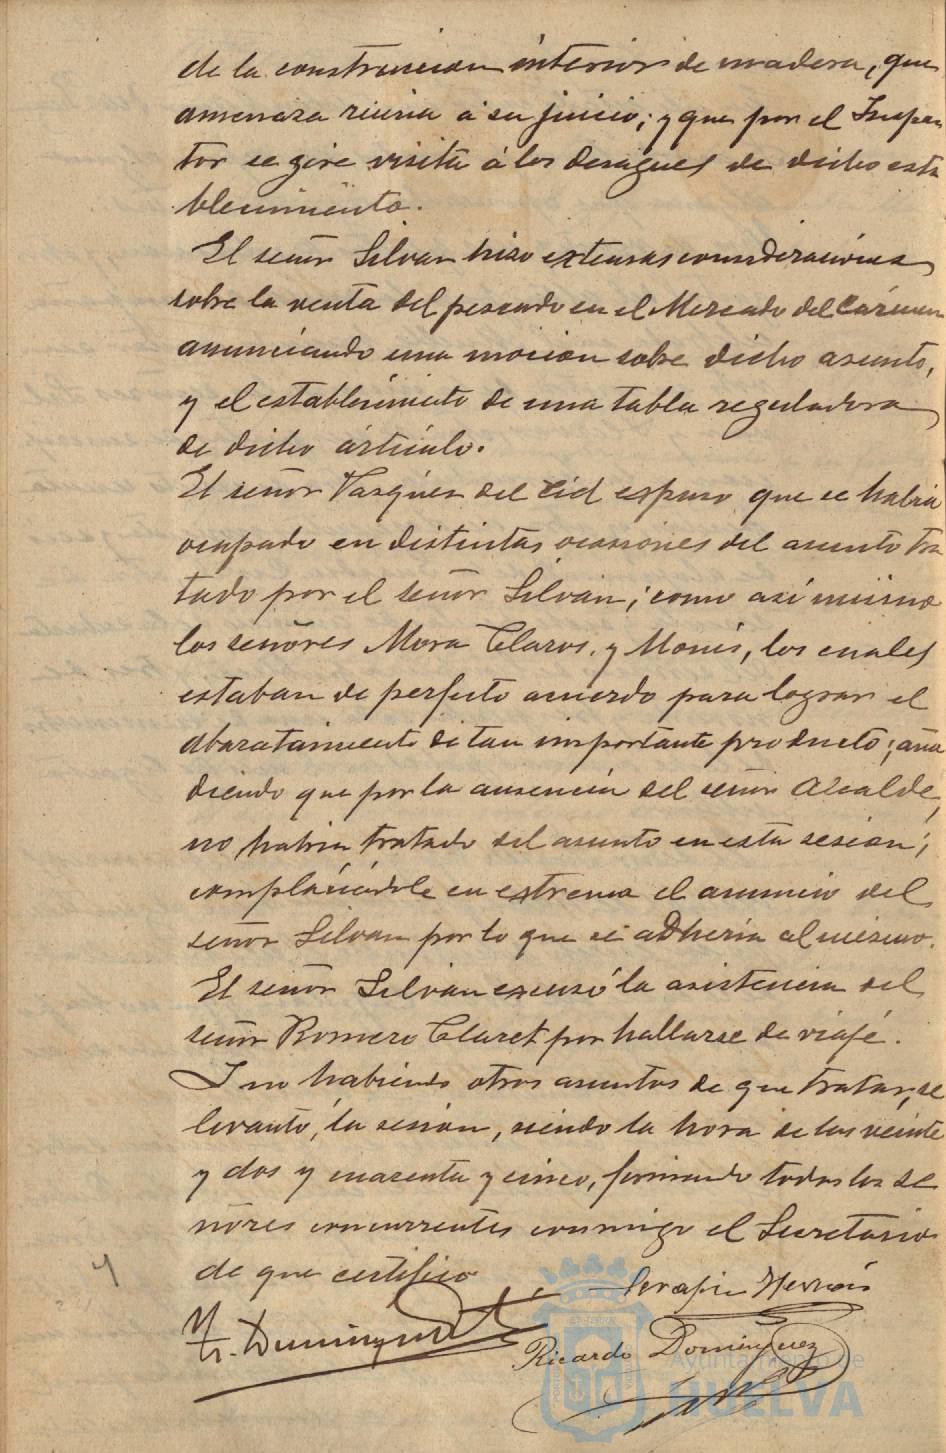 de la construccion interior de madera, que
amenaza ruina á su juicio; y que por el Inspec
tor se gire visita á los desagües de dicho esta
blecimiento.
El señor Silvan hizo extensas consideraciones
sobre la venta del pescado en el Mercado del Cármen
anunciando una mocion sobre dicho asunto,
y el establecimiento de una tabla reguladora
de dicho artículo.
El señor Vazquez del Cid espuso que se habia
ocupado en distintas ocasiones del asunto tra
tado por el señor Silván; como así mismo
los señores Mora Claros, y Monís, los cuales
estaban de perfecto acuerdo para lograr el
abaratamiento de tan importante producto; aña
diendo que por la ausencia del señor Alcalde,
no habia tratado del asunto en esta sesion;
complaciéndole en estremo el anuncio del
señor Silvan por lo que se adheria al mismo.
El señor Silvan excusó la asistencia del
señor Romero Claret por hallarse de viaje.
Y no habiendo otros asuntos de que tratar, se
levantó la sesion, siendo la hora de las veinte
y dos y cuarenta y cinco, firmando todos los se
ñores concurrentes conmigo el Secretario
de que certifico
Serafin
Dominguez
Ricardo Dominguez
Ayuntamiento de
HUELVA